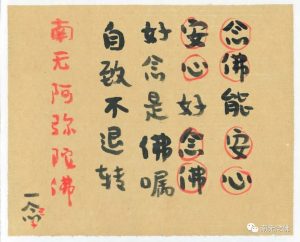 念佛能安心
安心好念佛
好念是佛嘱
自致不退转
南无阿弥陀佛
一念